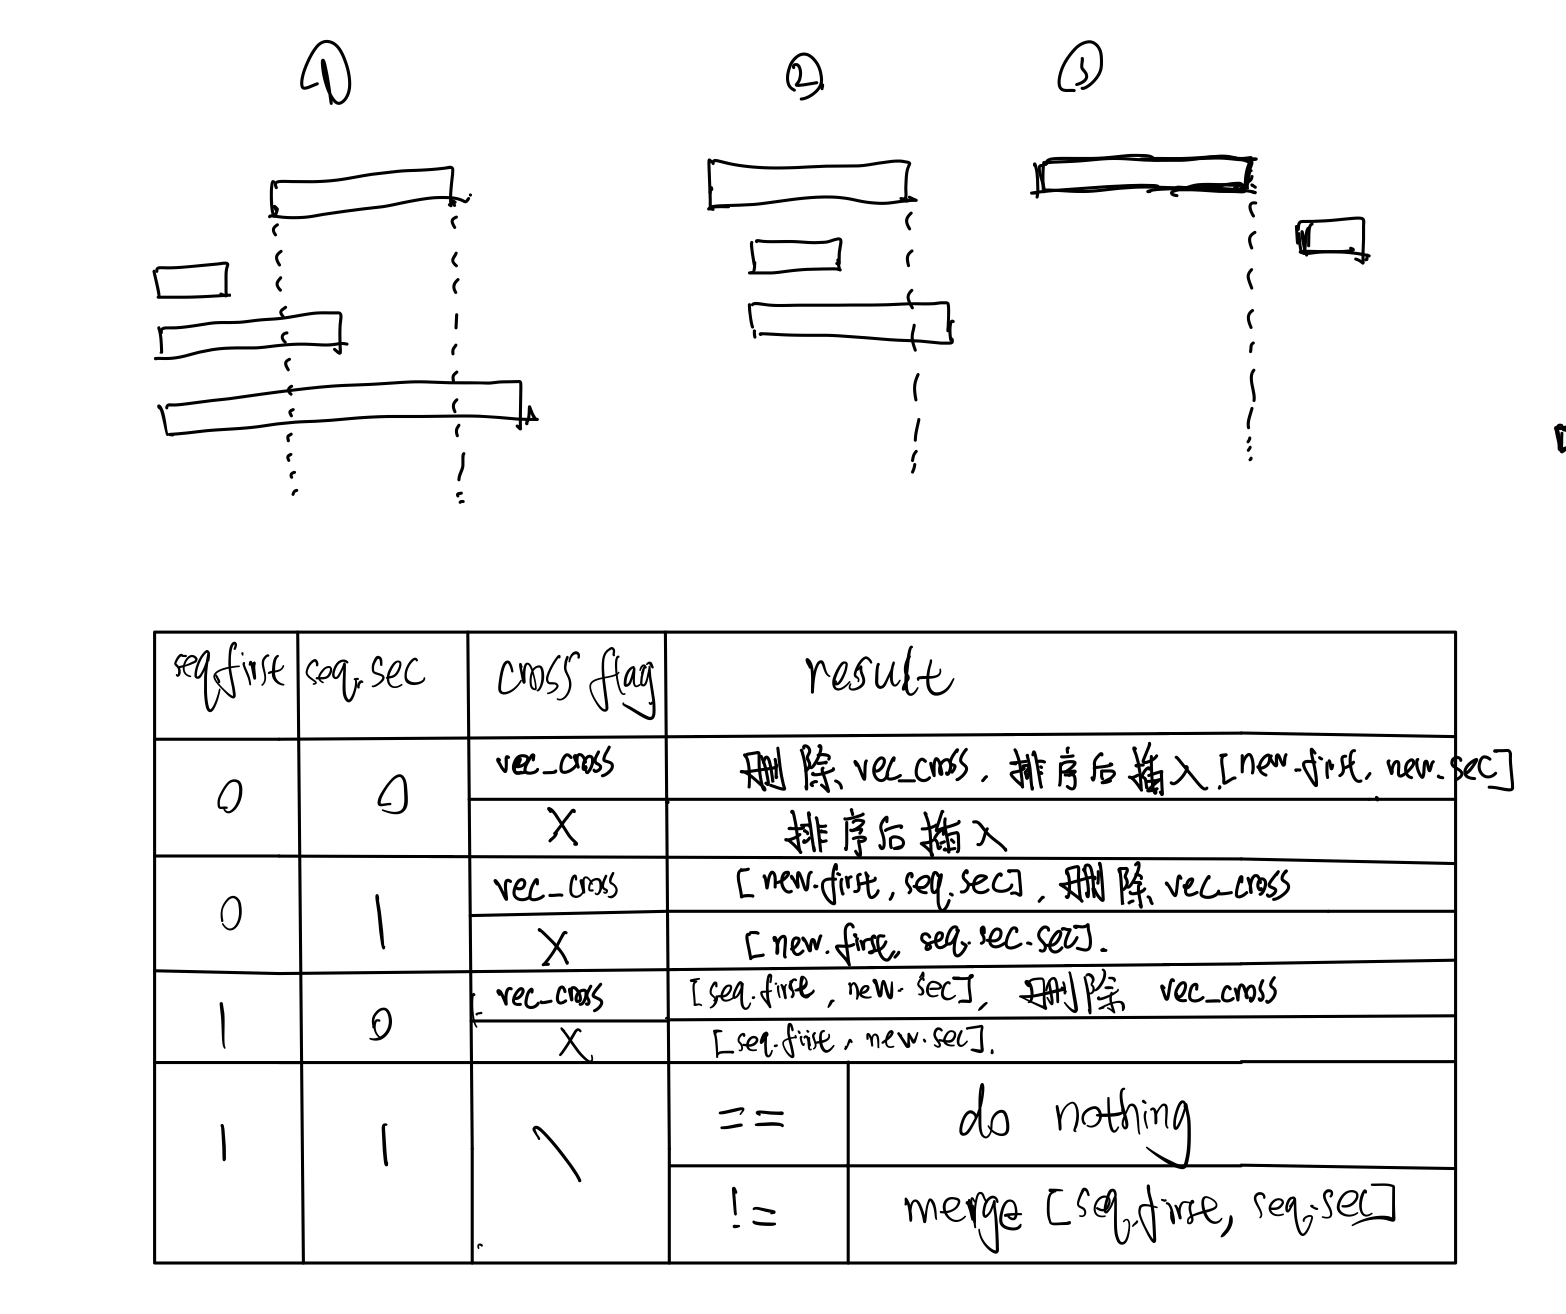 ① ② ③
seq.first seq.sec cross flag result
0 0 vec_cross 删除 vec_cross, 排序后插入 [new.first, new.sec]
X 排序后插入
0 1 vec_cross [new.first, seq.sec], 删除 vec_cross
X [new.first, seq.sec.sec].
1 0 vec_cross [seq.first, new.sec], 删除 vec_cross
X [seq.first, new.sec].
1 1 \ == do nothing
!= merge [seq.first, seq.sec]